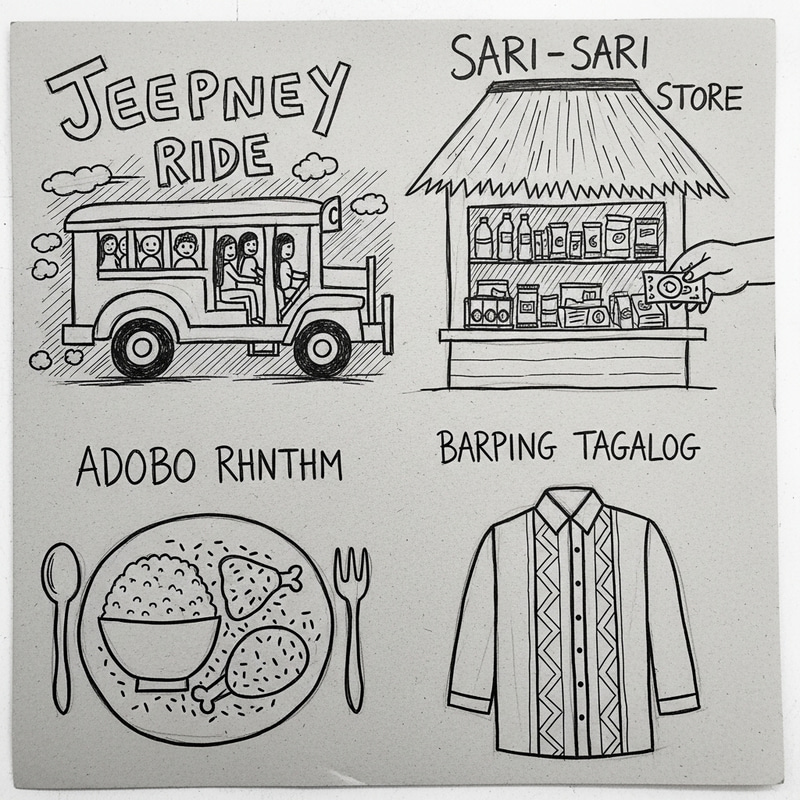 JEEPNEY
RIDE
SARI-SARI
STORE
ADOBO RHNTHM
BARPING TAGALOG